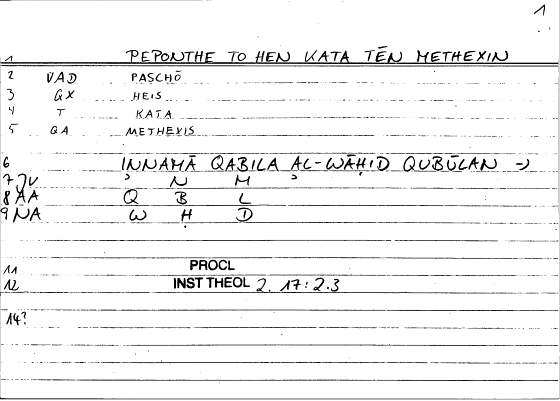 1
1 PEPONTHE TO HEN KATA TĒN METHEXIN
2 VAD PASCHŌ
3 QX HEIS
4 T KATA
5 QA METHEXIS
6 INNAMĀ QABILA AL-WĀḤID QUBŪLAN →
7 JV ʾ N M ʾ
8 AA Q B L
9 NA W Ḥ D
11 PROCL
12 INST THEOL 2. 17: 2.3
14?